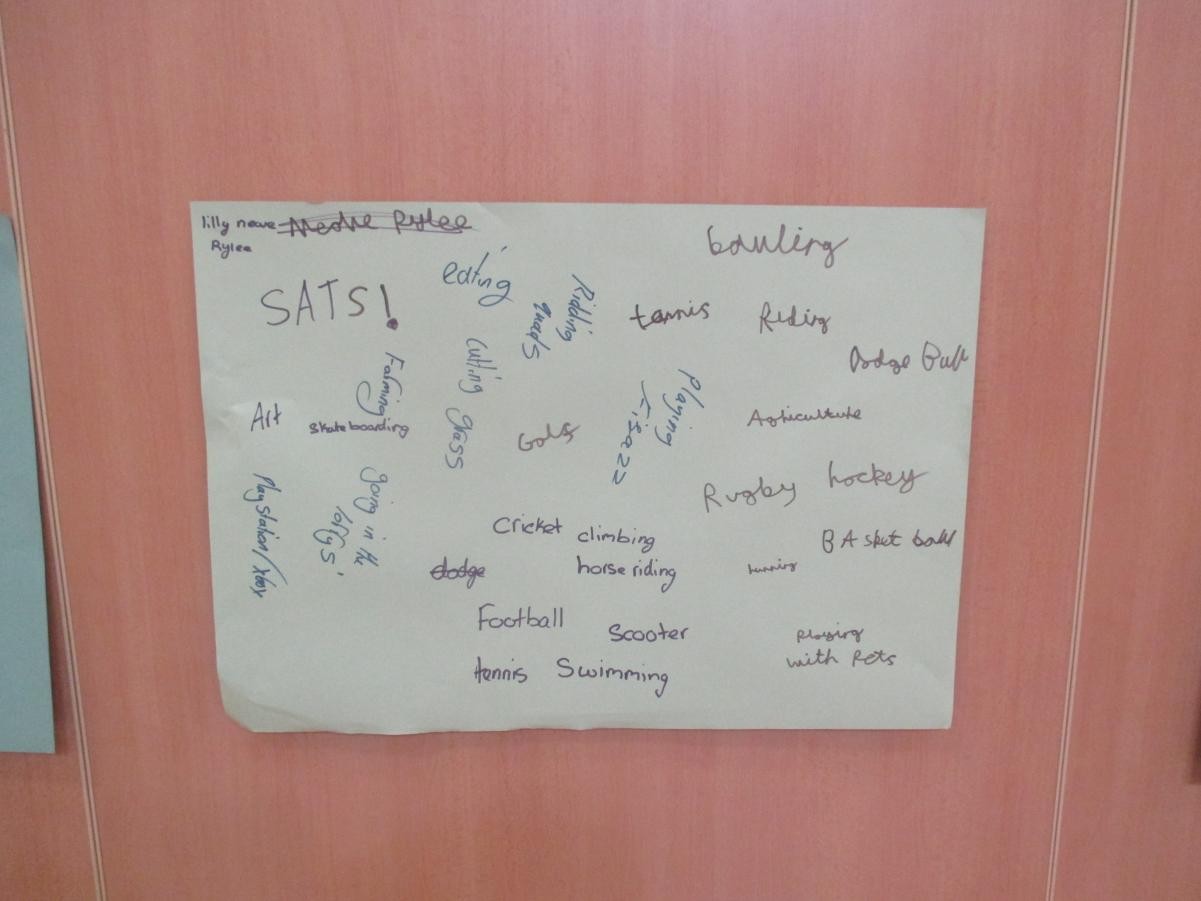 lilly
Rylee
SATS!
eating
Ridding
quads
bowling
tennis
Riding
Dodge Ball
Farming
cutting grass
Art
Skateboarding
Golf
Playing
Fifa22
Agriculture
Playstation/Xbox
going in the
lorrys
Rugby
hockey
Cricket
climbing
BAsket ball
dodge
horse riding
running
Football
Scooter
Playing
with Pets
tennis
Swimming